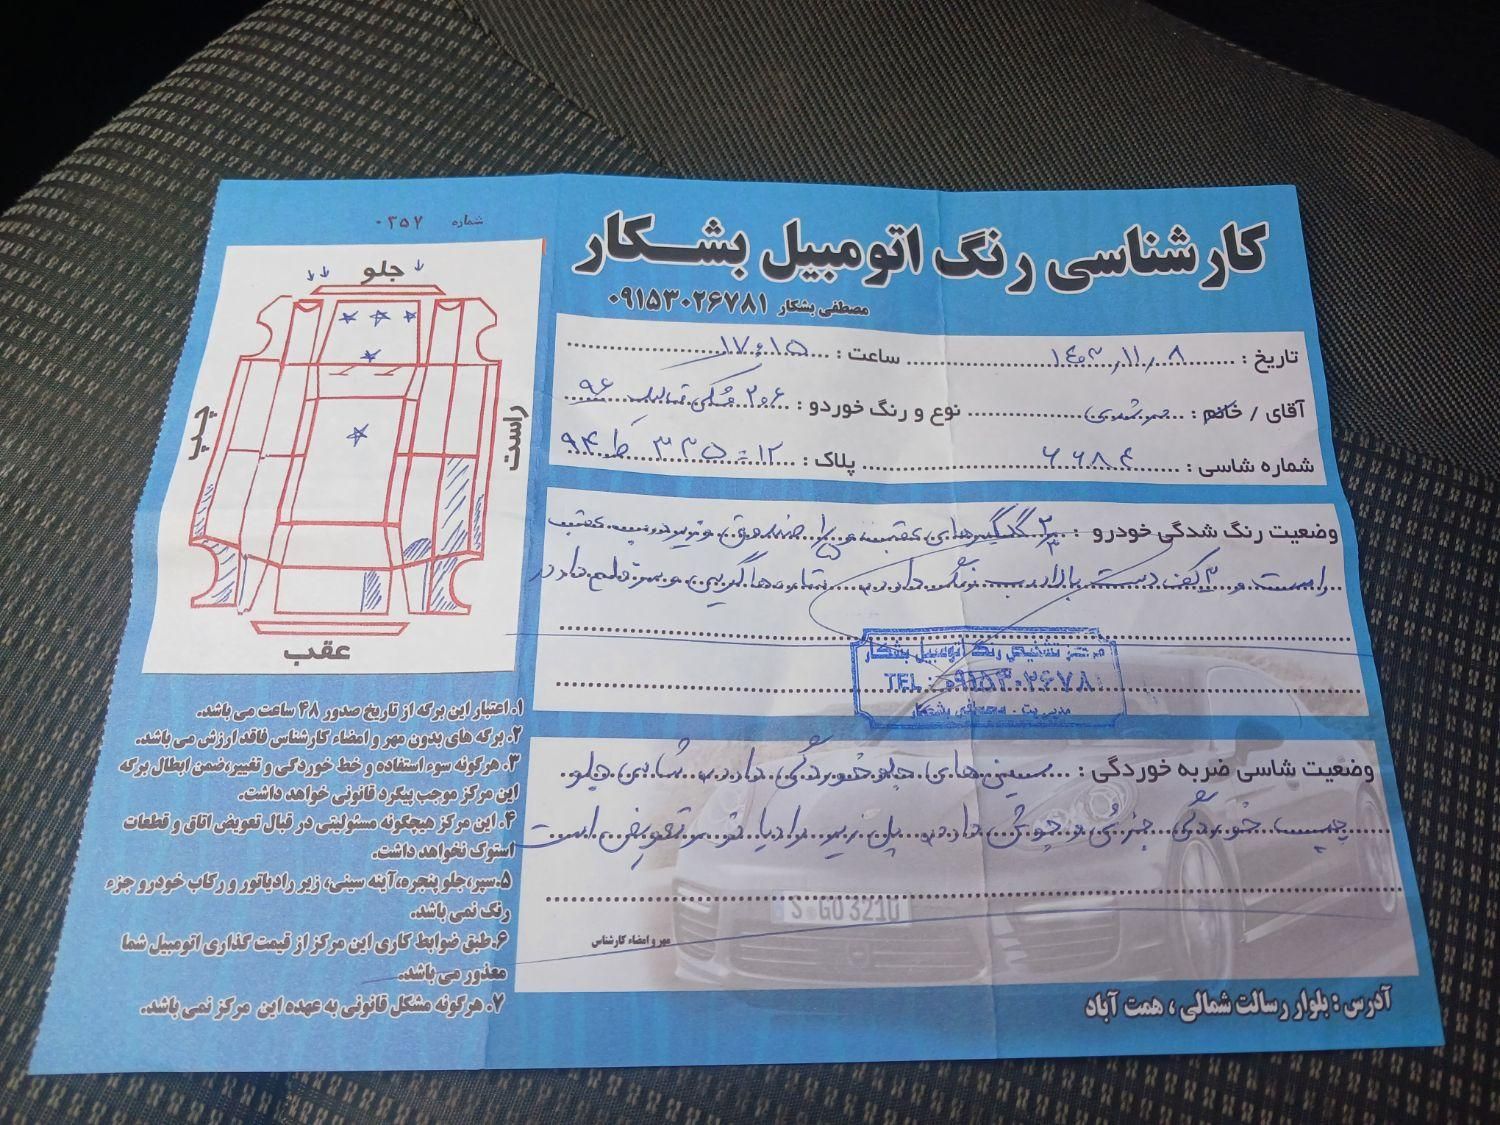 شماره ۰۲۵۷
کارشناسی رنگ اتومبیل بشکار
مصطفی بشکار ۰۹۱۵۳۰۲۶۷۸۱
تاریخ : ۱۴۰۲/۱۱/۸ ساعت : ۱۷:۱۵
آقای / خانم : مرشدی نوع و رنگ خودرو : ۲۰۶ مشکی ۹۶
شماره شاسی : ۶۶۸۴ پلاک : ۱۲ - ۳۳۵ ط ۹۴
وضعیت رنگ شدگی خودرو : ۲/۳ گلگیرهای عقب و ۱/۵ صندوق و زیر درب عقب
راست و ۲ کف دست بالا درب رنگ دارد ستاره‌ها لیسه و سرقلم دارد
مرکز تشخیص رنگ اتومبیل بشکار
TEL : ۰۹۱۵۳۰۲۶۷۸۱
مدیریت : مصطفی بشکار
وضعیت شاسی ضربه خوردگی : سینی های جلو خوردگی دارد شاسی جلو
چپ خوردگی جزئی و جوش دارد پل زیر رادیاتور تعویض است
مهر و امضاء کارشناس
آدرس : بلوار رسالت شمالی ، همت آباد
جلو
چپ
راست
عقب
۱. اعتبار این برگه از تاریخ صدور ۴۸ ساعت می باشد.
۲. برگه های بدون مهر و امضاء کارشناس فاقد ارزش می باشد.
۳. هرگونه سوء استفاده و خط خوردگی و تغییر،ضمن ابطال برگه
این مرکز موجب پیگرد قانونی خواهد داشت.
۴. این مرکز هیچگونه مسئولیتی در قبال تعویض اتاق و قطعات
استوک نخواهد داشت.
۵. سپر،جلو پنجره،آینه سینی، زیر رادیاتور و رکاب خودرو جزء
رنگ نمی باشد.
۶. طبق ضوابط کاری این مرکز از قیمت گذاری اتومبیل شما
معذور می باشد.
۷. هرگونه مشکل قانونی به عهده این مرکز نمی باشد.
S GO 3210